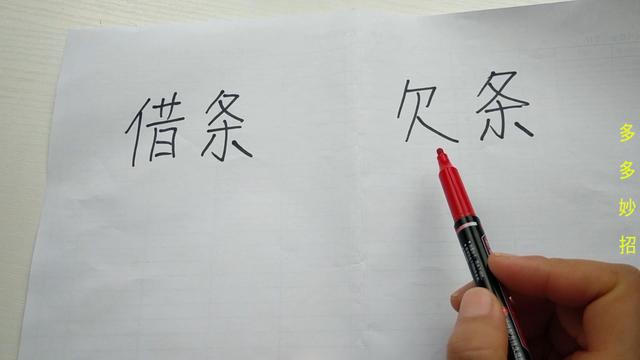 借条 欠条
多多妙招